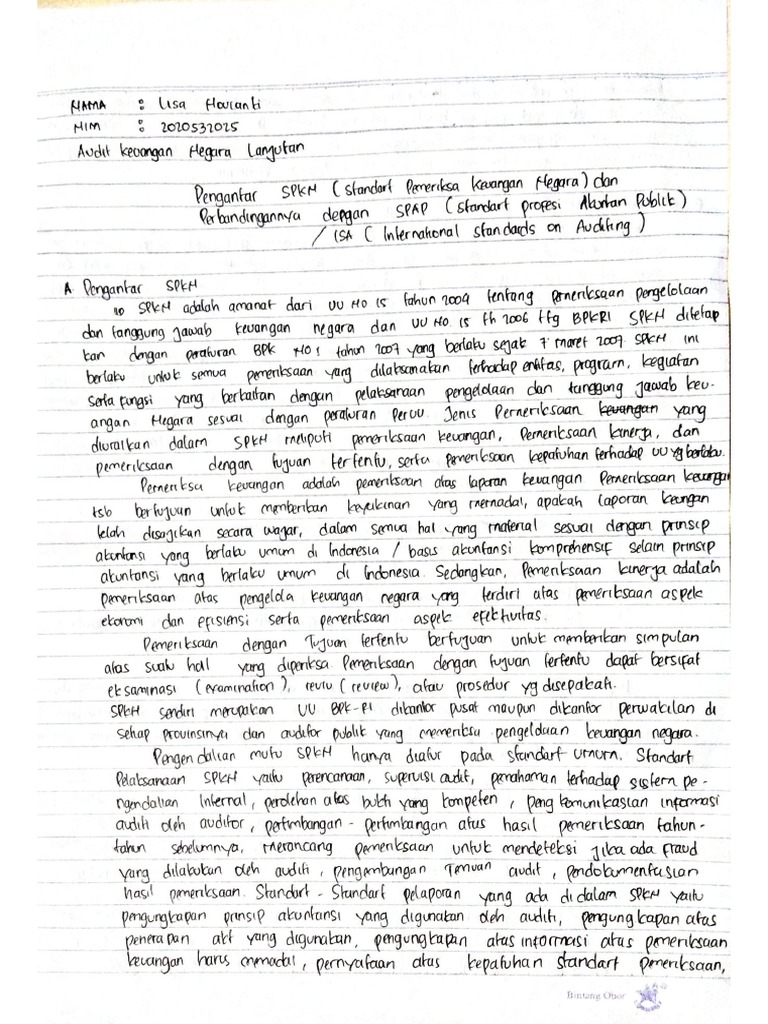 NAMA : Lisa Novianti
NIM : 2020532025
Audit Keuangan Negara Lanjutan
Pengantar SPKN (Standart Pemeriksa Keuangan Negara) dan
Perbandingannya dengan SPAP (Standart profesi Akuntan Publik)
/ ISA ( International Standards on Auditing )
A Pengantar SPKN
SPKN adalah amanat dari UU NO 15 tahun 2004 tentang pemeriksaan pengelolaan
dan tanggung jawab keuangan negara dan UU NO. 15 th 2006 ttg BPKRI SPKN ditetap
kan dengan peraturan BPK NO 1 tahun 2007 yang berlaku sejak 7 maret 2007. SPKN ini
berlaku untuk semua pemeriksaan yang dilaksanakan terhadap entitas, program, kegiatan
serta fungsi yang berkaitan dengan pelaksanaan pengelolaan dan tanggung jawab keu-
angan Negara sesuai dengan peraturan Peruu. Jenis Pemeriksaan keuangan yang
diuraikan dalam SPKN meliputi pemeriksaan keuangan, Pemeriksaan kinerja, dan
pemeriksaan dengan tujuan tertentu, serta pemeriksaan kepatuhan terhadap UU yg berlaku.
Pemeriksa keuangan adalah pemeriksaan atas laporan keuangan Pemeriksaan keuangan
tsb bertujuan untuk memberikan keyakinan yang memadai, apakah laporan keungan
telah disajikan secara wajar, dalam semua hal yang material sesuai dengan prinsip
akuntansi yang berlaku umum di Indonesia / basis akuntansi komprehensif selain prinsip
akuntansi yang berlaku umum di Indonesia. Sedangkan, Pemeriksaan kinerja adalah
pemeriksaan atas pengelola keuangan negara yang terdiri atas pemeriksaan aspek
ekonomi dan efisiensi serta pemeriksaan aspek efektivitas.
Pemeriksaan dengan Tujuan tertentu bertujuan untuk memberikan simpulan
atas suatu hal yang diperiksa. Pemeriksaan dengan tujuan tertentu dapat bersifat
eksaminasi (examination), reviu (review), atau prosedur yg disepakati.
SPKN sendiri merupakan UU BPK-RI dikantor pusat maupun dikantor perwakilan di
setiap provinsinya dan auditor publik yang memeriksa pengelolaan keuangan negara.
Pengendalian mutu SPKN hanya diatur pada standart umum. Standart
Pelaksanaan SPKN yaitu perencanaan, supervisi audit, pemahaman terhadap sistem pe-
ngendalian Internal, perolehan atas bukti yang kompeten, pengkomunikasian informasi
auditi oleh auditor, pertimbangan - pertimbangan atas hasil pemeriksaan tahun-
tahun sebelumnya, merancang pemeriksaan untuk mendeteksi jika ada fraud
yang dilakukan oleh auditi, pengembangan Temuan audit, pendokumentasian
hasil pemeriksaan. Standart - Standart pelaporan yang ada di dalam SPKN yaitu
pengungkapan prinsip akuntansi yang digunakan oleh auditi, pengungkapan atas
penerapan akt yang digunakan, pengungkapan atas informasi atas pemeriksaan
keuangan harus memadai, pernyataan atas kepatuhan standart pemeriksaan,
Bintang Obor